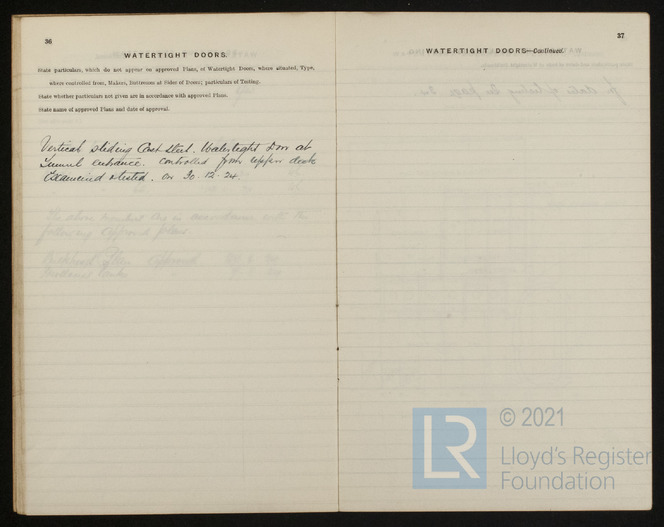 36
WATERTIGHT DOORS.
State particulars, which do not appear on approved Plans, of Watertight Doors, where situated, Type,
where controlled from, Makers, Dimensions at Sides of Doors; particulars of Testing.
State whether particulars not given are in accordance with approved Plans.
State name of approved Plans and date of approval.
Vertical sliding Cast Steel. Watertight Door at
Tunnel entrance. controlled from upper deck
Examined & tested. on 30.12.24.
37
WATERTIGHT DOORS—Continued.
LR
© 2021
Lloyd's Register
Foundation